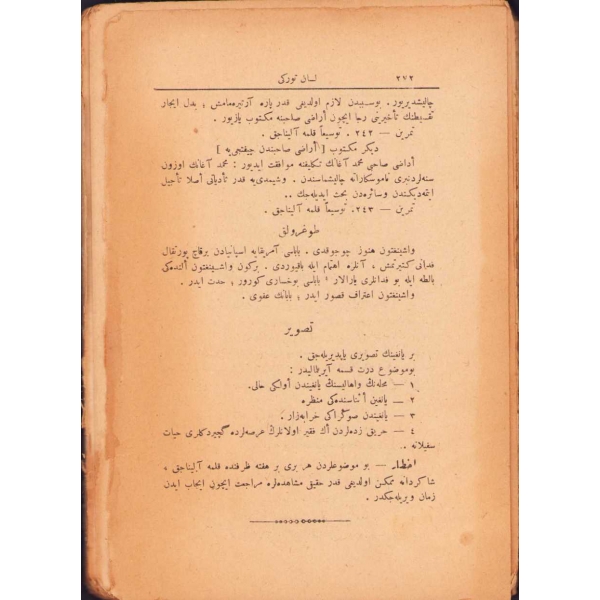 ٢٧٢
لسان تورکی
چالیشدیریور. بوسببدن لازم اولدیغی قدر پاره آرتیره‌مامش؛ بدل ایجار
تقسیطنك تأخیرینی رجا ایچون أراضی صاحبنه مکتوب یازیور.
تمرین — ٢٤٢. توسیعاً قلمه آلیناجق.
دیکر مکتوب [ أراضی صاحبندن چیفتجی‌یه ]
أراضی صاحبی محمد آغانك تکلیفنه موافقت ایدیور: محمد آغانك اوزون
سنه‌لردنبری ناموسکارانه چالیشماسندن. وشیمدی‌یه قدر تأدیاتی أصلا تأجیل
ایتمه‌دیکندن وسائره‌دن بحث ایدیله‌جك..
تمرین — ٢٤٣. توسیعاً قلمه آلیناجق.
طوغرولق
واشینغتون هنوز چوجوقدی. باباسی آمریقایه اسپانیادن برقاچ پورتقال
فدانی کتیرتمش، آنلره اهتمام ایله باقیوردی. برکون واشینغتون ألنده‌کی
بالطه ایله بو فدانلری یارالار؛ باباسی بوخساری کورور؛ حدت ایدر.
واشینغتون اعتراف قصور ایدر؛ بابانك عفوی.
تصویر
بر یانغینك تصویری یاپدیریله‌جق.
بوموضوع درت قسمه آیریلیدر:
١ — محله‌نك واهالیسنك یانغیندن أولکی حالی.
٢ — یانغین أثناسنده‌کی منظره
٣ — یانغیندن صوکراکی خرابه‌زار.
٤ — حریق زده‌لردن أك فقیر اولانلرك عرصه‌لرده کچیردکلری حیات
سفیلانه.
اخطار — بو موضوعلردن هر بری بر هفته ظرفنده قلمه آلیناجق،
شاکردانه ممکن اولدیغی قدر حقیقی مشاهده‌لره مراجعت ایچون ایجاب ایدن
زمان ویریله‌جکدر.